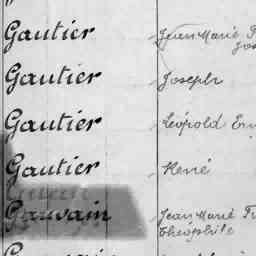 Gautier Jean Marie
Gautier Joseph
Gautier Léopold
Gautier René
Gauvain Jean Marie
Théophile